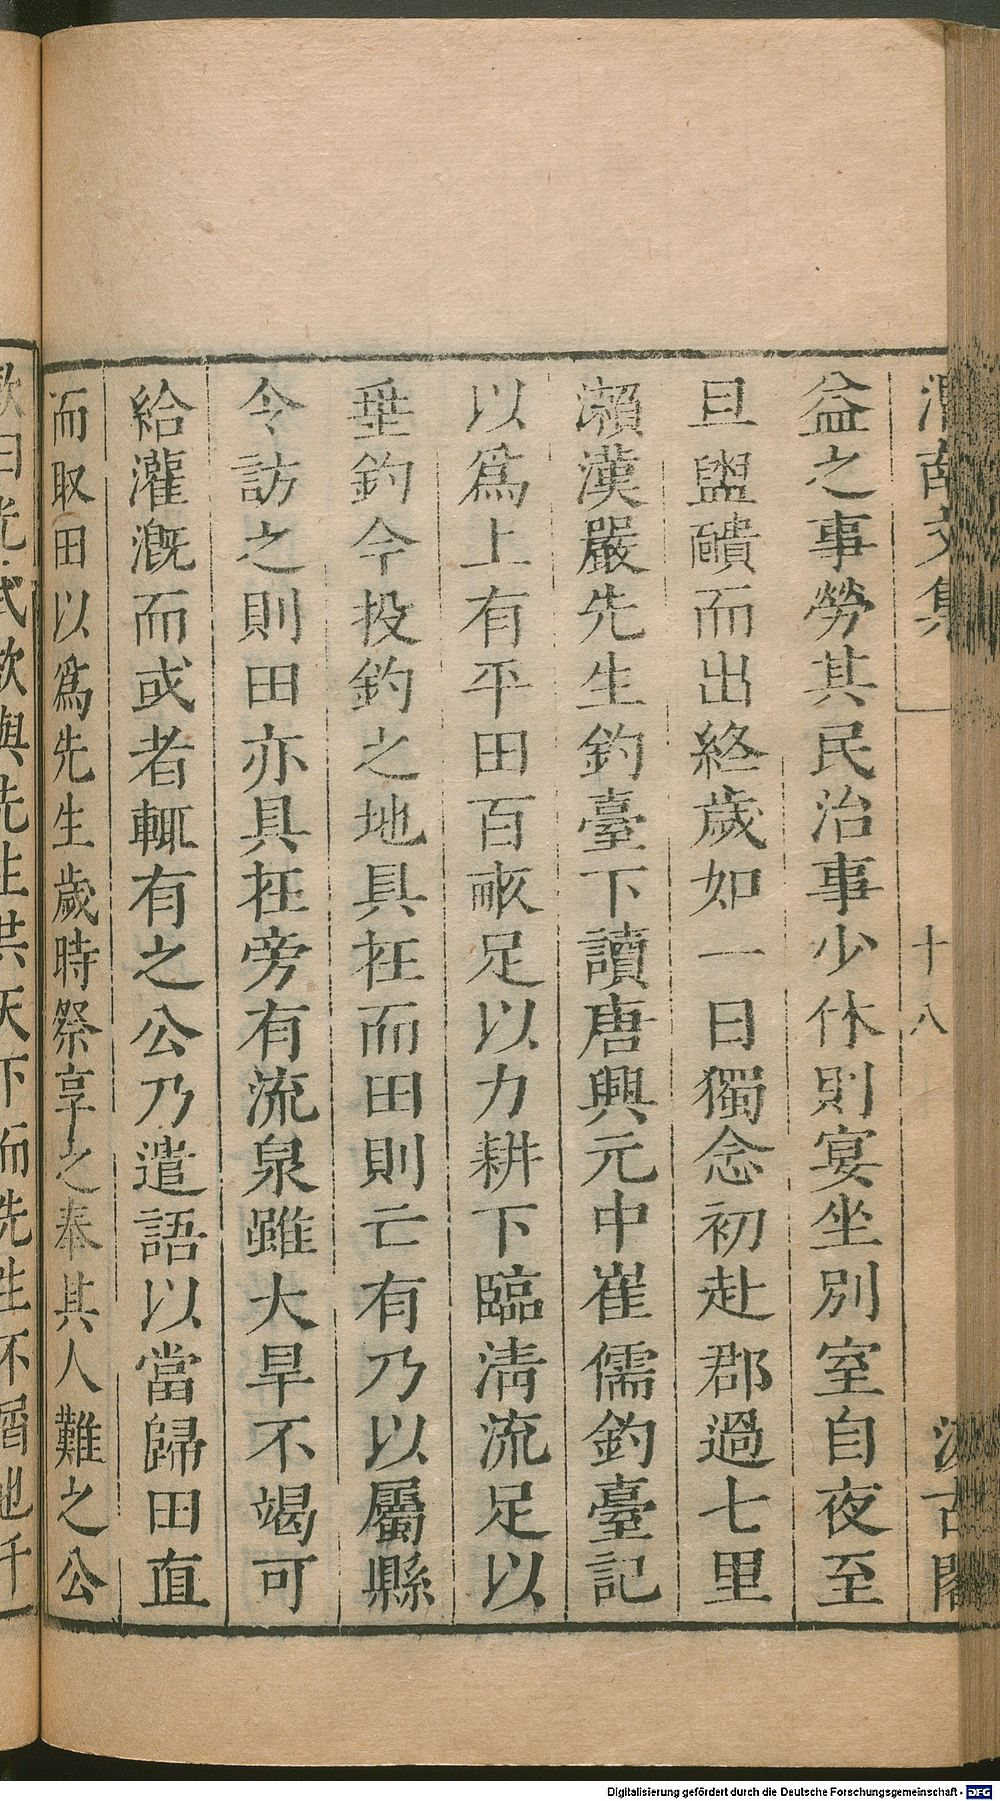 渭南文集
十八
汲古閣
益之事勞其民治事少休則宴坐別室自夜至
旦盥頮而出終歲如一日獨念初赴郡過七里
瀨漢嚴先生釣臺下讀唐興元中崔儒釣臺記
以爲上有平田百畝足以力耕下臨淸流足以
垂釣今投釣之地具在而田則亡有乃以屬縣
令訪之則田亦具在旁有流泉雖大旱不竭可
給灌漑而或者輒有之公乃遣語以當歸田直
而取田以爲先生歲時祭享之奉其人難之公
歎曰光武欲與先生共天下而先生不屑也千
Digitalisierung gefördert durch die Deutsche Forschungsgemeinschaft - DFG